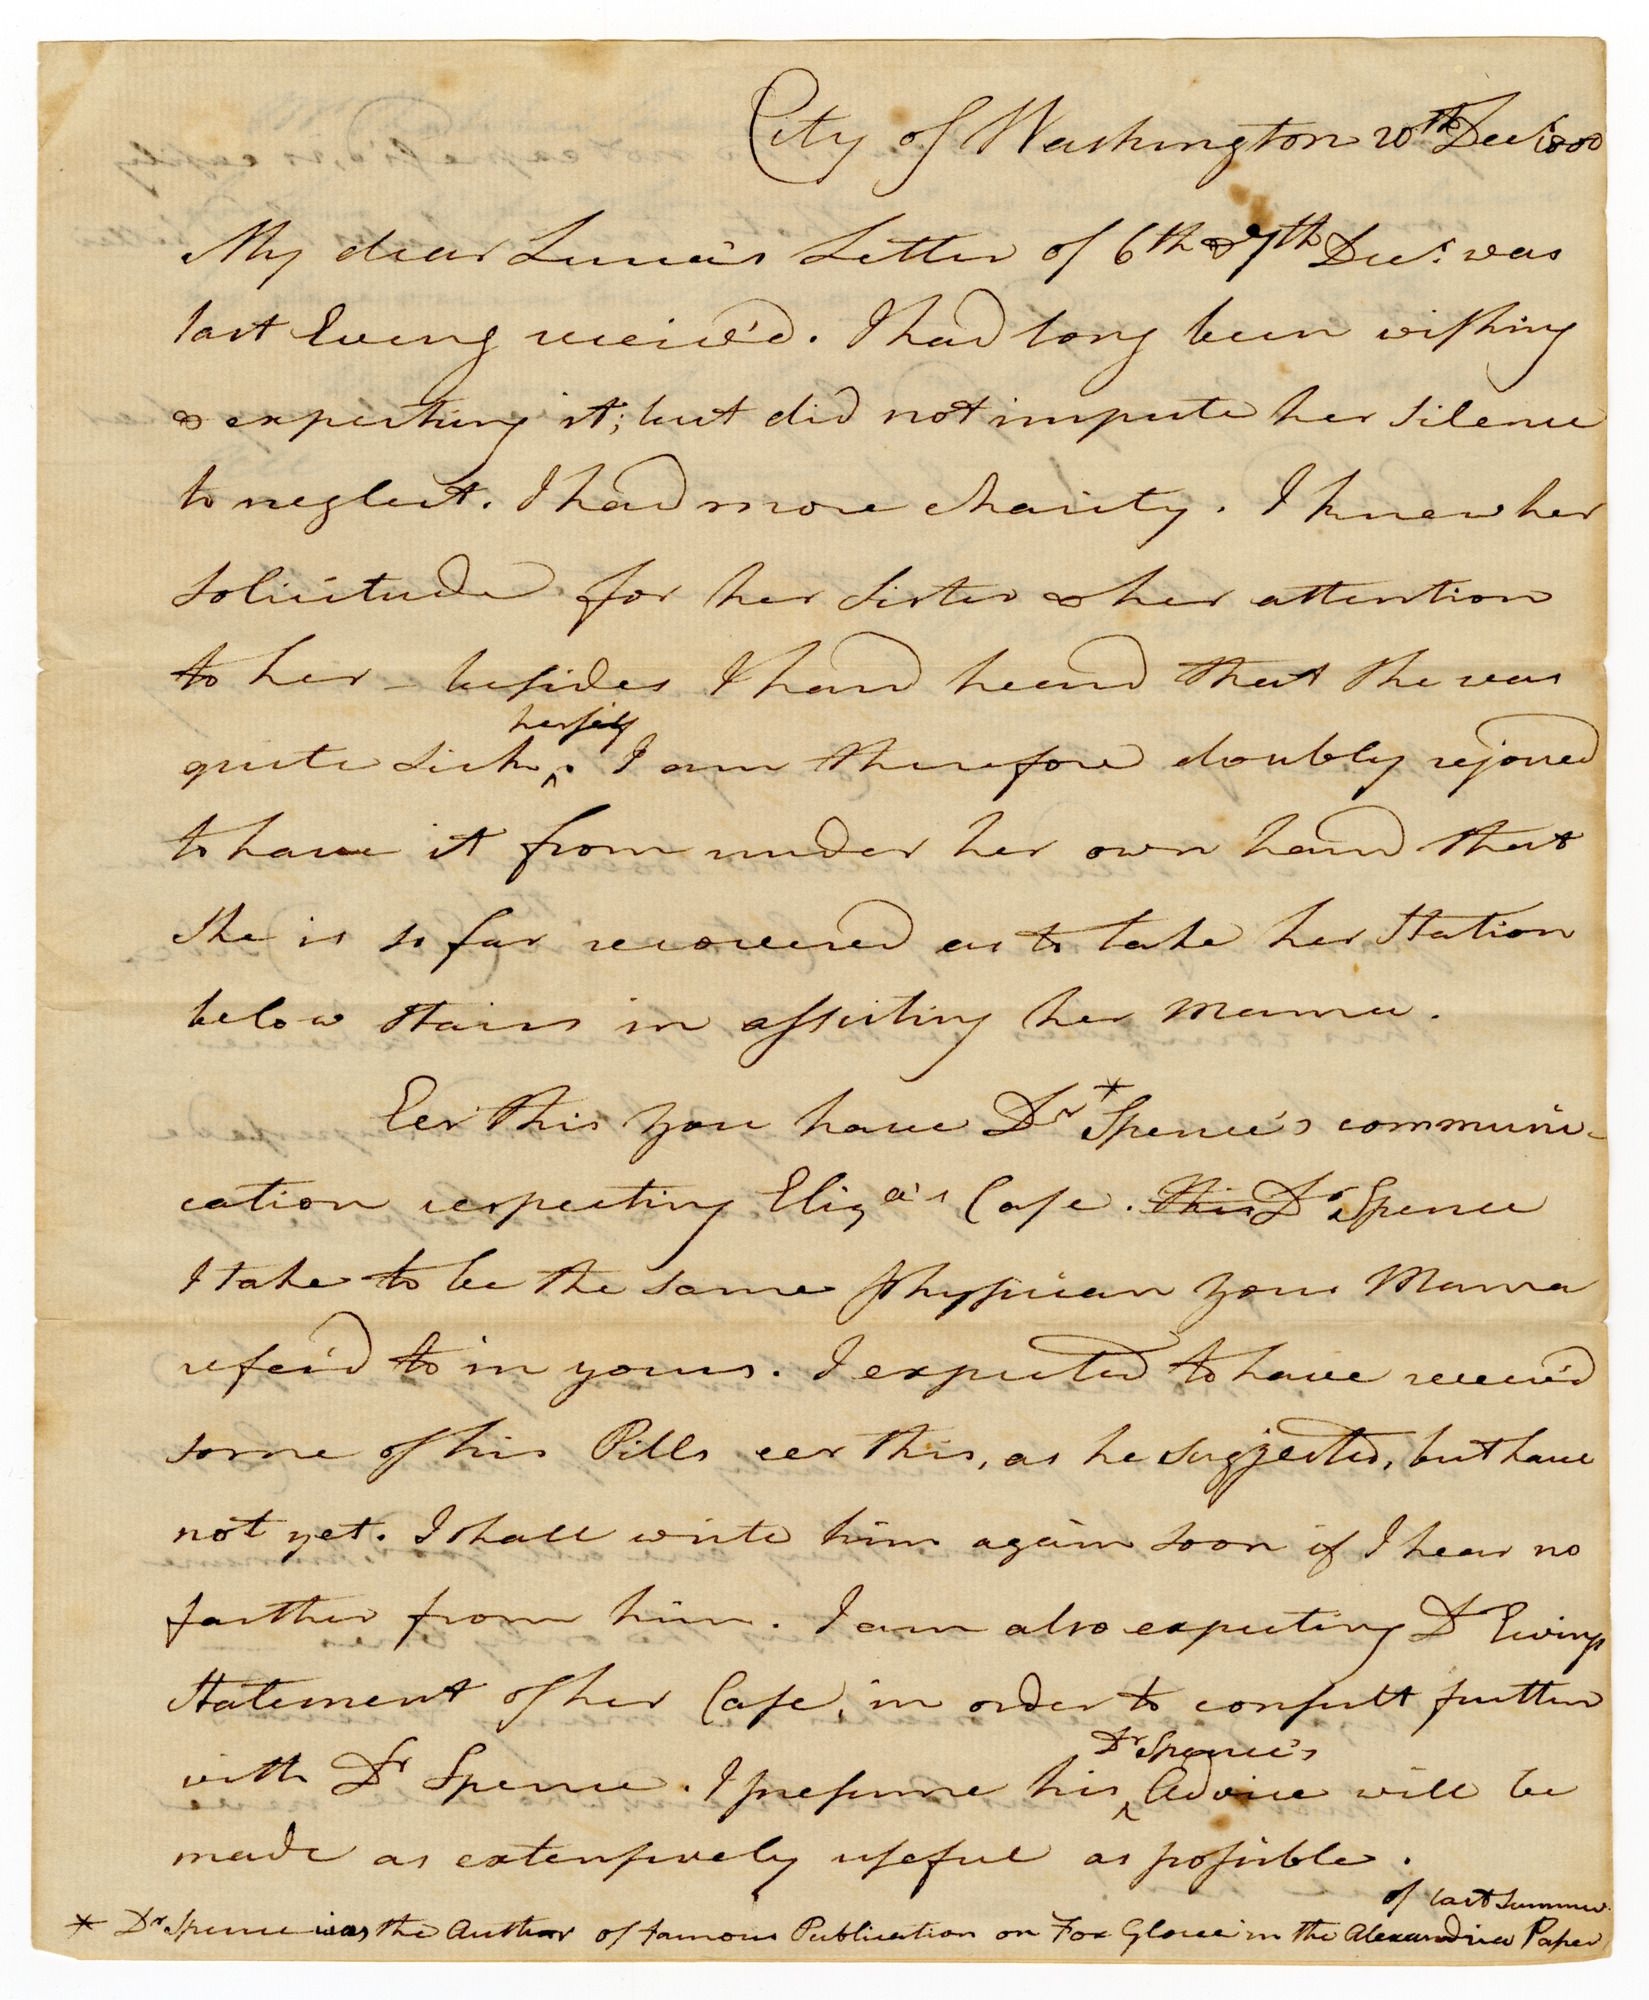 City of Washington 20th Decr. 1800
My dear Lucia's Letter of 6th & 7th Decr. was
last Eveng receiv'd. I had long been wishing
& expecting it; but did not impute her silence
to neglect. I had more charity. I knew her
solicitude for her sister & her attention
to her – besides I had heard that she was
quite sick ^ herself. I am therefore doubly rejoiced
to have it from under her own hand that
she is so far recovered as to take her station
below stairs in assisting her Mama.
Eer this you have Dr * Spence's communi-
cation respecting Eliza's Case. This Dr Spence
I take to be the same Physician your Mama
refer'd to in yours. I expected to have receiv'd
some of his Pills eer this, as he suggested, but have
not yet. I shall write him again soon if I hear no
farther from him. I am also expecting Dr Ewings
statement of her Case, in order to consult further
with Dr Spence. I presume his ^ Dr Spence's Advice will be
made as extensively useful as possible.
of last summer
* Dr Spence was the Author of famous Publication on Fox Glove in the Alexandria Paper